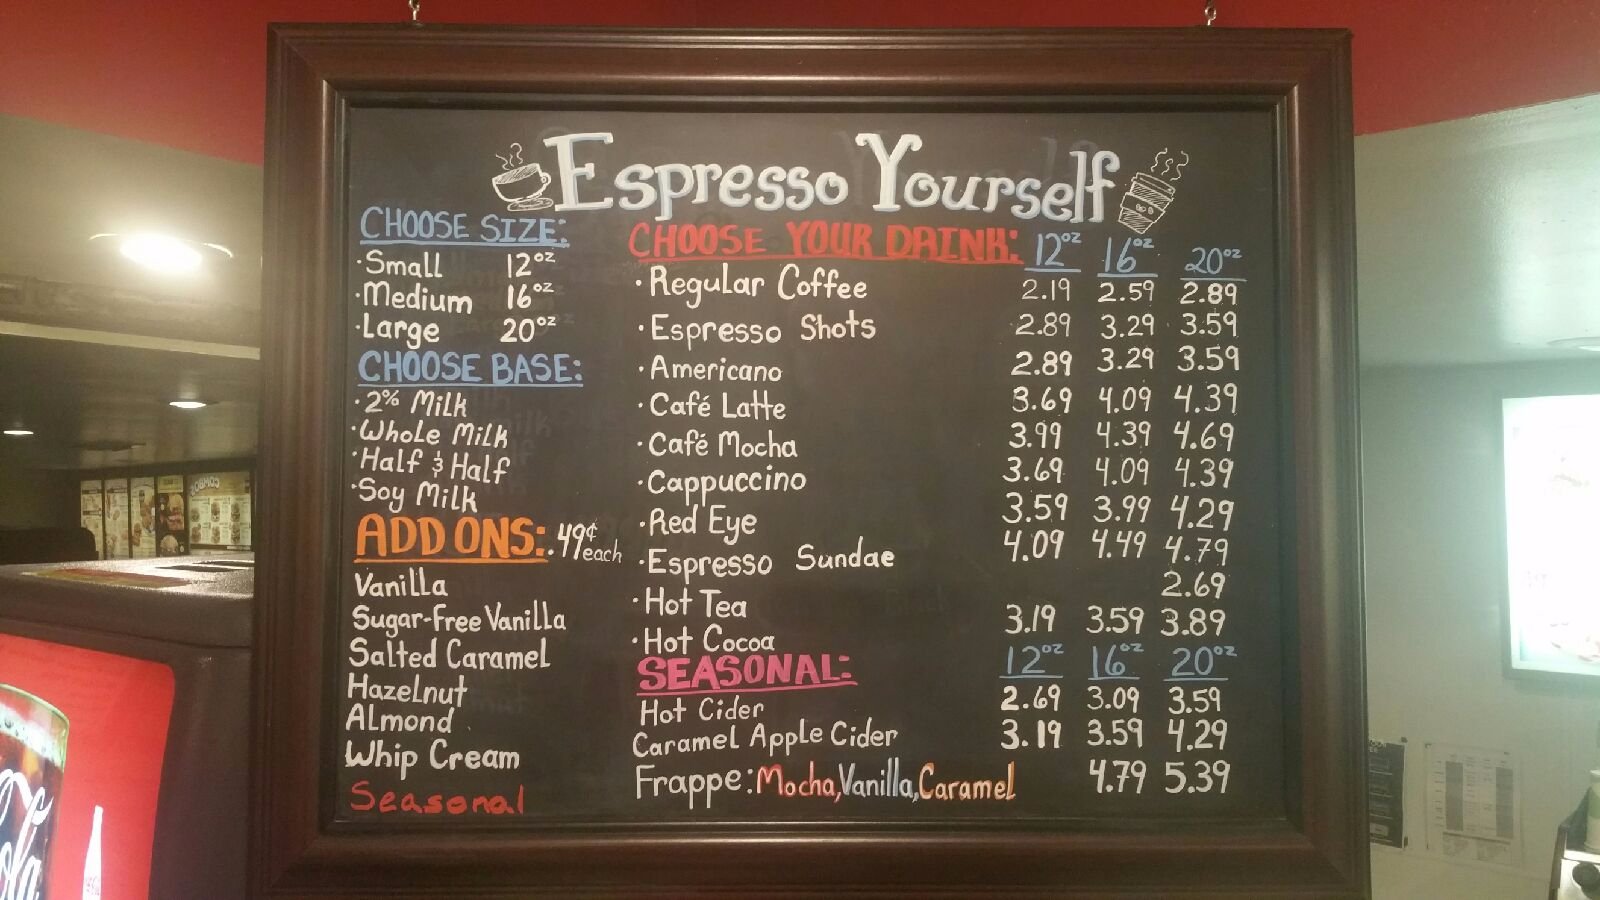 Espresso Yourself
CHOOSE SIZE:
·Small 12oz
·Medium 16oz
·Large 20oz
CHOOSE BASE:
·2% Milk
·Whole Milk
·Half & Half
·Soy Milk
ADD ONS: .49¢ each
Vanilla
Sugar-Free Vanilla
Salted Caramel
Hazelnut
Almond
Whip Cream
Seasonal
CHOOSE YOUR DRINK: 12oz 16oz 20oz
·Regular Coffee 2.19 2.59 2.89
·Espresso Shots 2.89 3.29 3.59
·Americano 2.89 3.29 3.59
·Café Latte 3.69 4.09 4.39
·Café Mocha 3.99 4.39 4.69
·Cappuccino 3.69 4.09 4.39
·Red Eye 3.59 3.99 4.29
·Espresso Sundae 4.09 4.49 4.79
·Hot Tea 2.69
·Hot Cocoa 3.19 3.59 3.89
SEASONAL: 12oz 16oz 20oz
Hot Cider 2.69 3.09 3.59
Caramel Apple Cider 3.19 3.59 4.29
Frappe: Mocha, Vanilla, Caramel 4.79 5.39
COMBOS